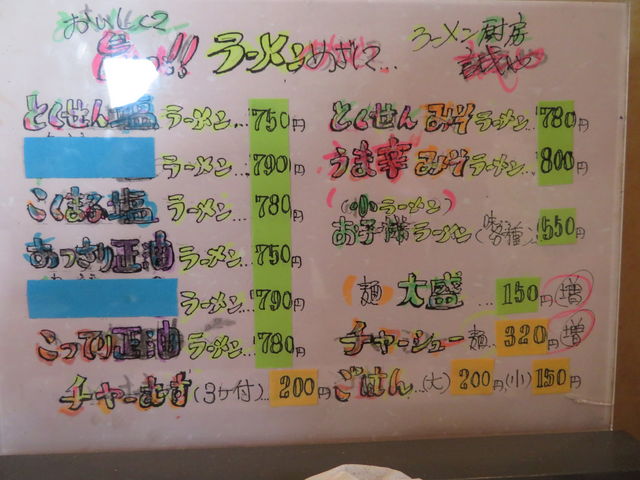 おいしくて
ラーメンめざして...
ラーメン厨房
とくせん塩ラーメン...750円
ラーメン...790円
こくまろ塩ラーメン...780円
あっさり正油ラーメン...750円
ラーメン...790円
こってり正油ラーメン...780円
チャーむす(3ケ付)...200円
とくせんみそラーメン...780円
うま辛みそラーメン...800円
(小ラーメン)
お子様ラーメン(味各種)...550円
(麺)大盛...150円増
チャーシュー麺...320円増
ごはん...(大)200円(小)150円